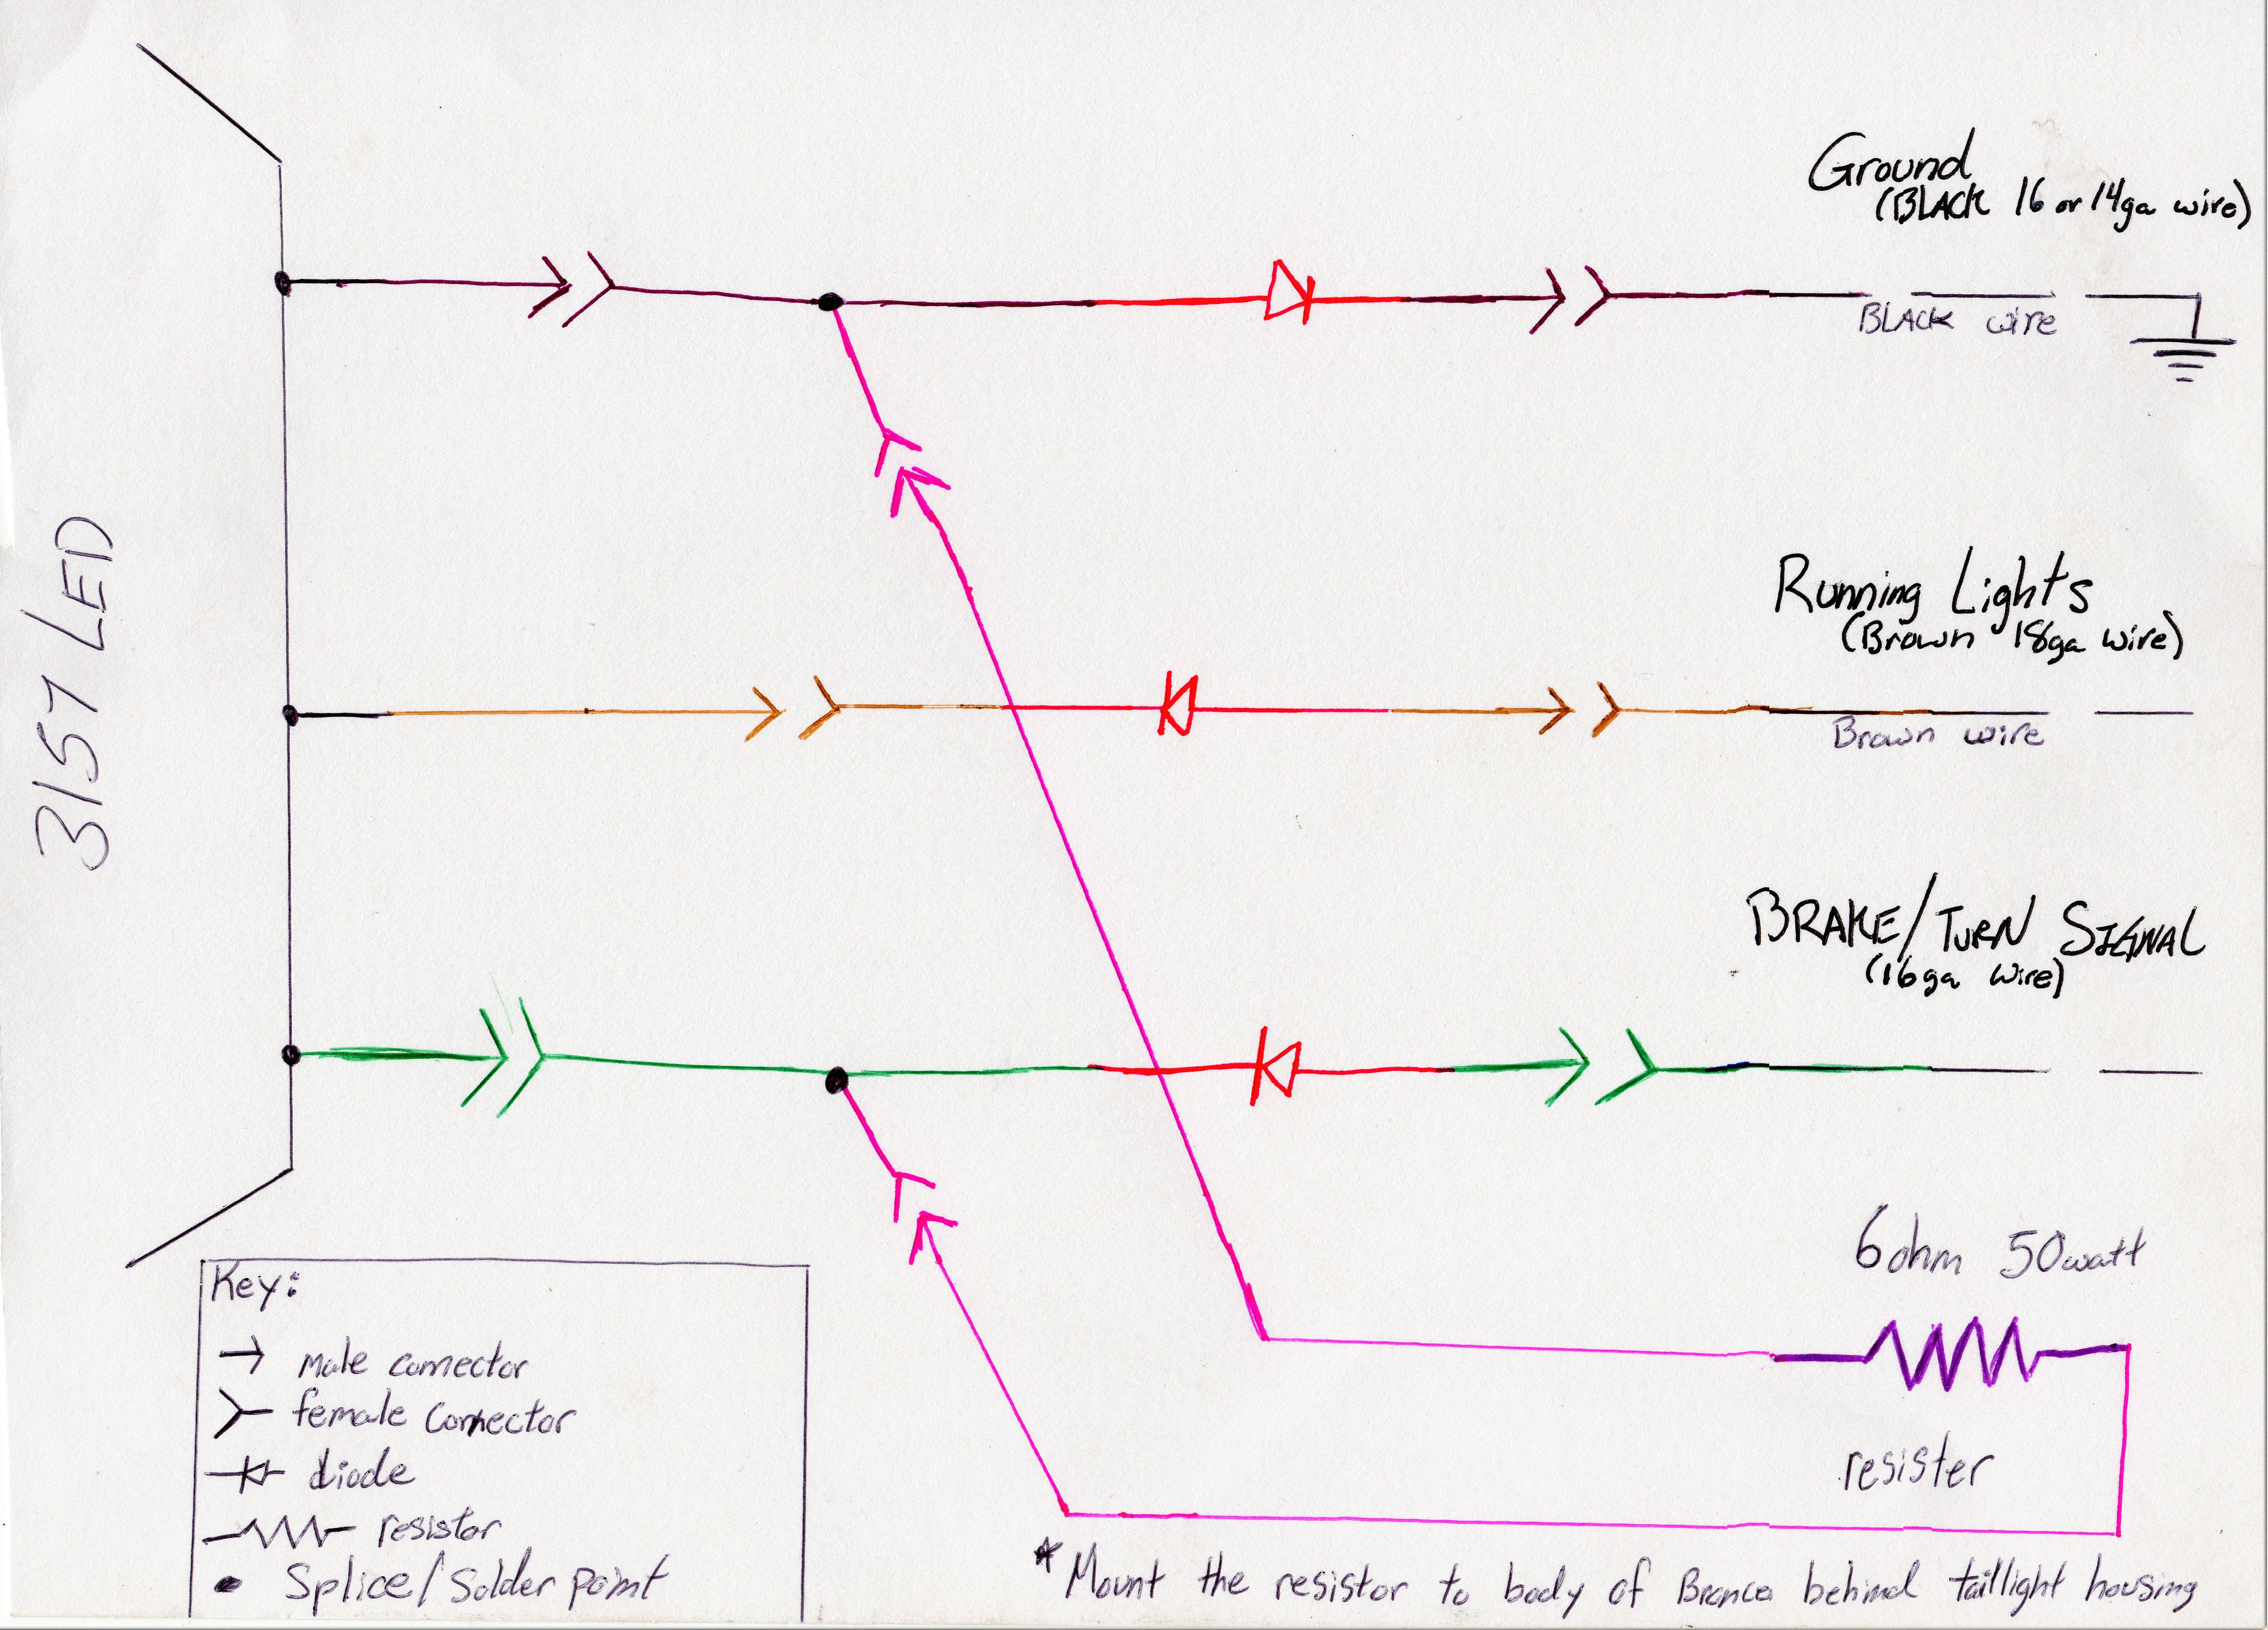 Ground
(BLACK 16 or 14ga wire)
BLACK wire
3157 LED
Running Lights
(Brown 18ga wire)
Brown wire
BRAKE/TURN SIGNAL
(16ga wire)
6ohm 50watt
resister
Key:
male connector
female connector
diode
resistor
Splice/Solder point
*Mount the resistor to body of Bronco behind taillight housing